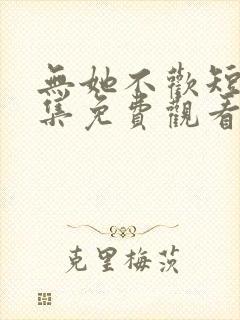 無她不歡短
集免費觀看
克里梅茨